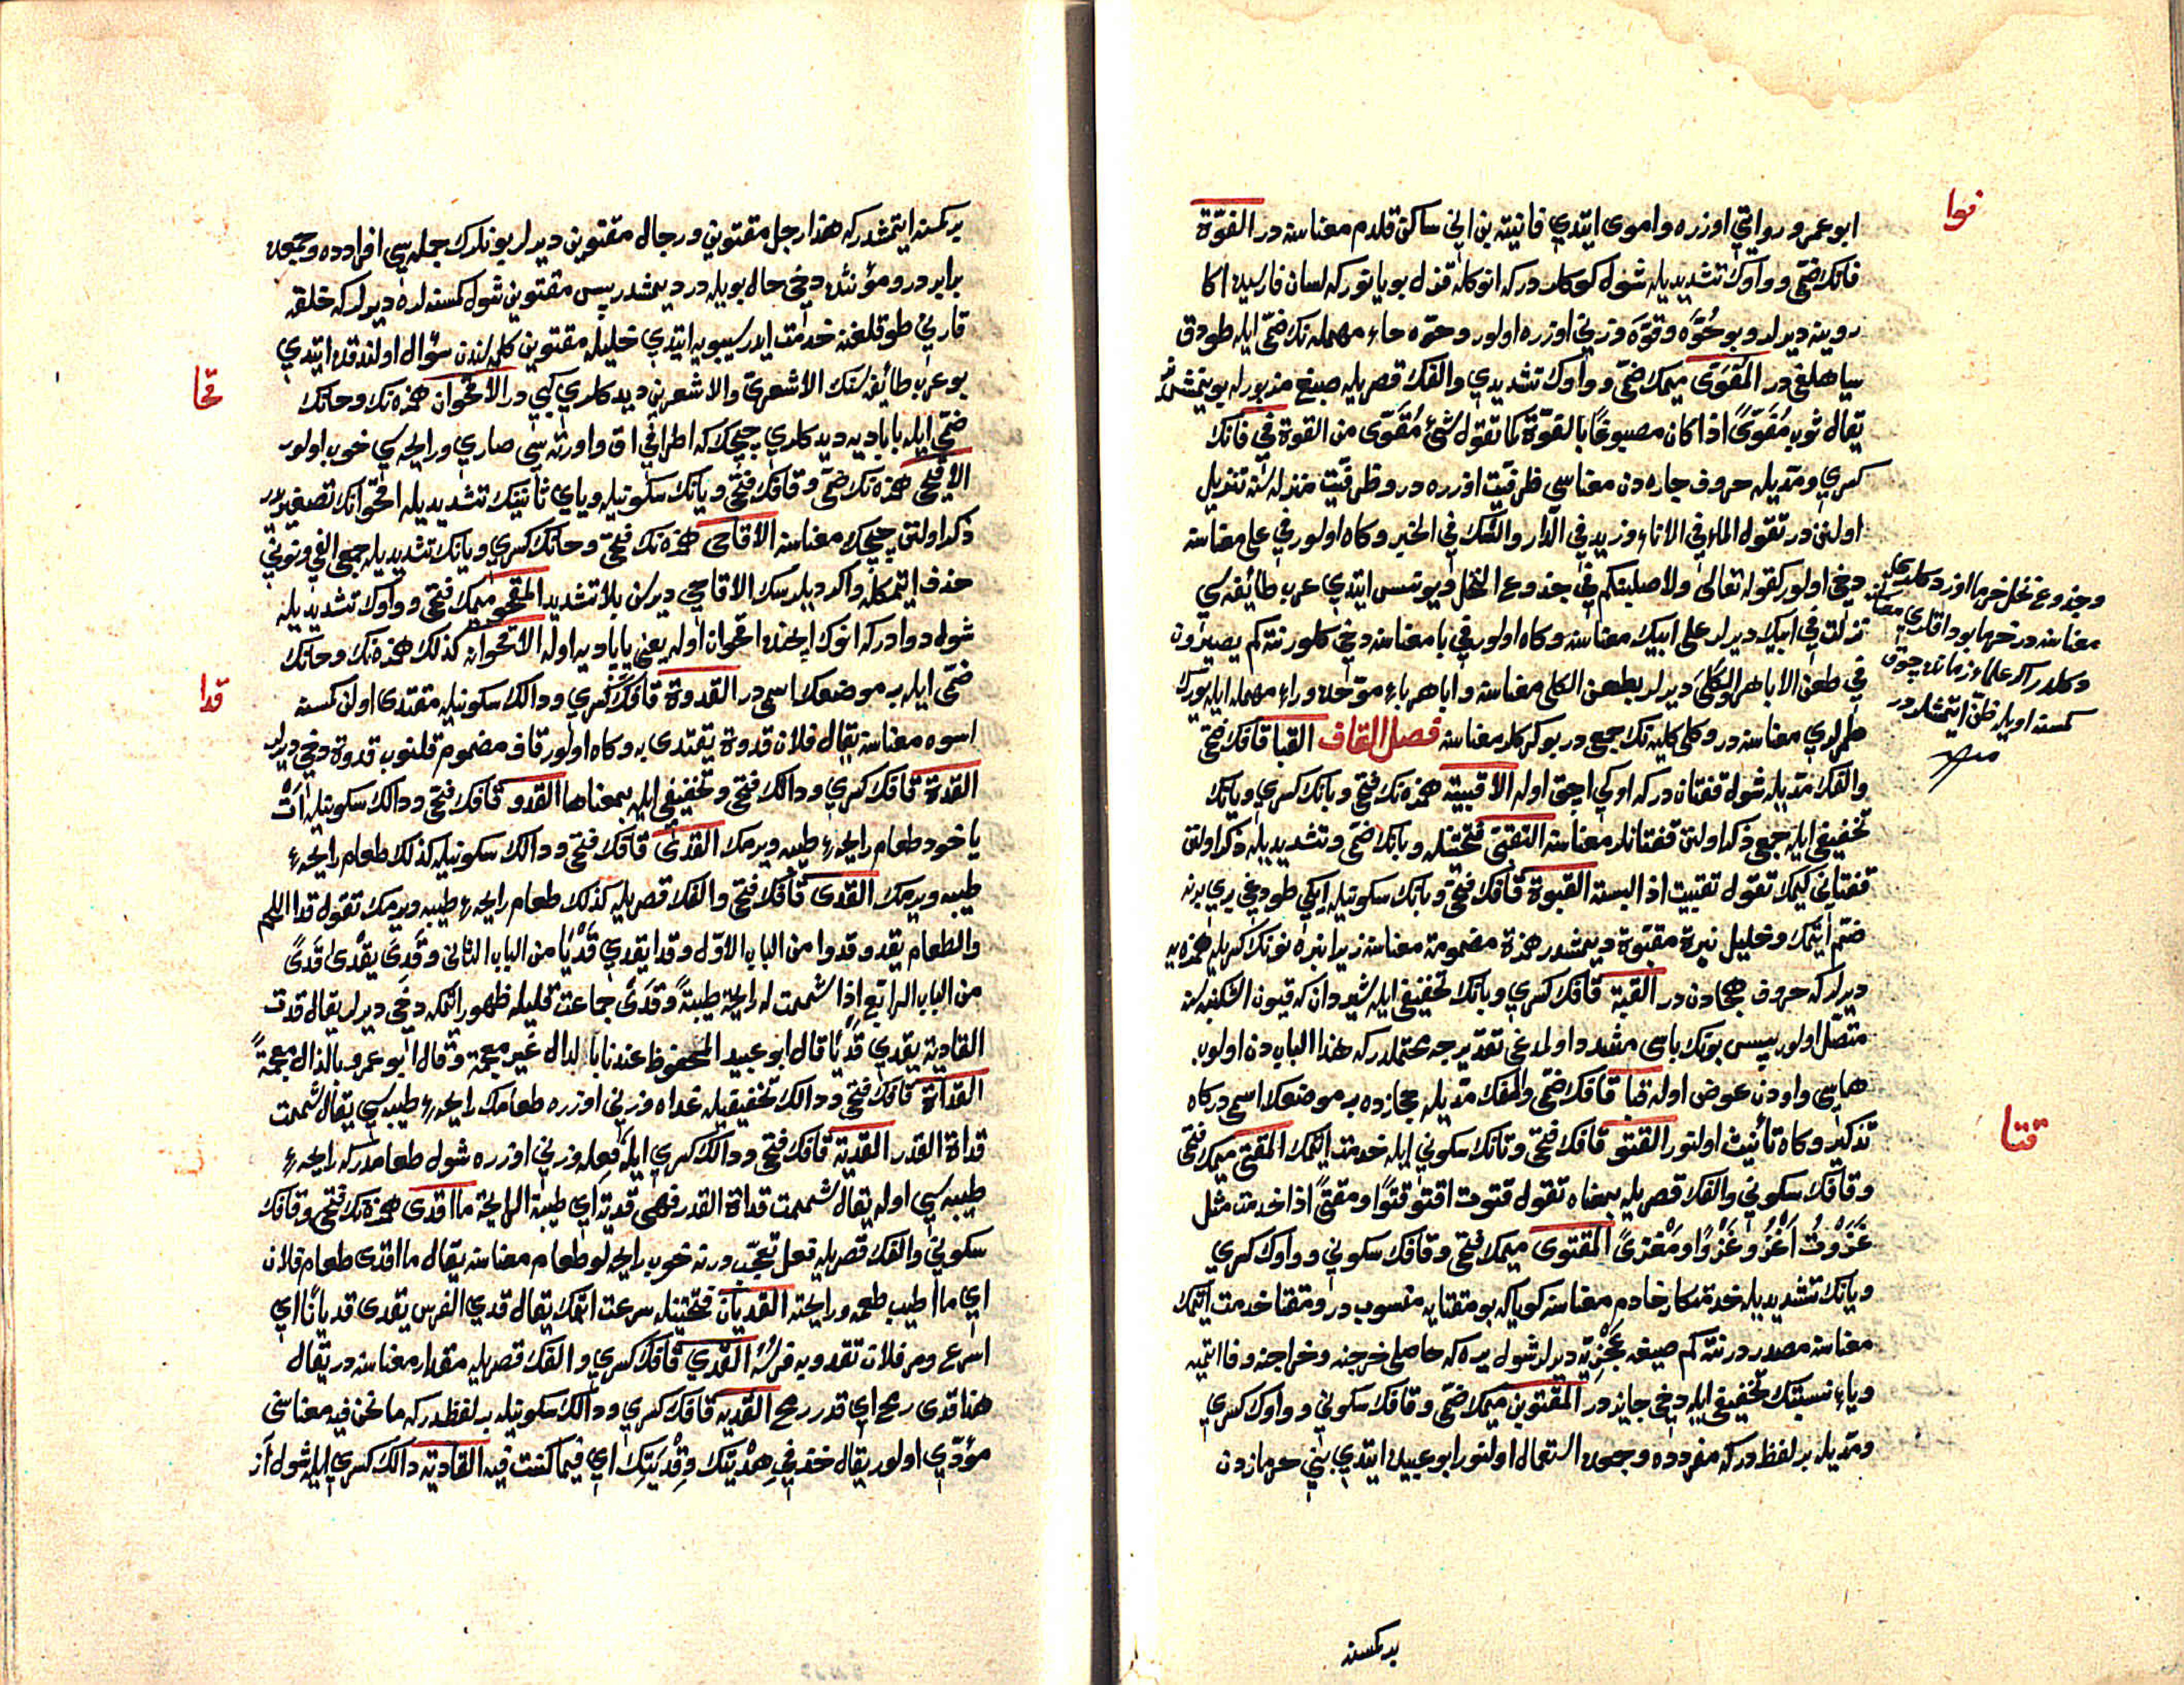 فوا
ابو عمرو روايتي اوزره واموى ايتدي فانيته بن اني ساكن قلدم معناسنه در الفوّة
فانك ضمّى وواوك تشديديله شول كوكلر در كه انوكله قزل بويانور كه لسان فارسيده اكا
روينه ديرلر وبو حُوّه وقوّه وزني اوزره اولور وحوّه حاء مهمله نك ضمّى ايله طودق
سياهلغيدر المُفَوَّى ميمك ضمّى وواوك تشديدي والفك قصريله صبغ مزبورله بوينمشدر
يقال ثوب مُفَوَّىً اذا كان مصبوغًا بالفوّة كما تقول شئ مُقَوَّى من القوة في فانك
كسري ومدّيله حروف جارّه دن معناسي ظرفيّت اوزره در وظرفيّت منزله سنه تنزيل
اولنن در تقول الماء في الاناء وزيد في الدّار والشك في الخبر وكاه اولور في على معناسنه
دخي اولور كقوله تعالى ولاصلبنكم في جذوع النخل ويونس ايتدي عرب طائفه سي
وجذوع نخل خرما
معناسنه در خرما بوداقلري
نزلت في ابيك ديرلر على ابيك معناسنه وكاه اولور في با معناسنه دخي كلور نته كم يصيرون
في طعن الاباهر والكلى ديرلر بطعن الكلى معناسنه واباهر باء موحده وراء مهمله ايله يورك
كمسنه اويله ظنّ ايتمشلردر
طمرلري معناسنه در وكلى كليه نك جمعيدر بوكركلر معناسنه فصل القاف القبا قافك فتحى
والفك مدّيله شول قفتان در كه اوكي اچق اوله الاقبية همزه نك فتحى وبانك كسري ويانك
تخفيفي ايله جمعى ذكر اولنن قفتانلر معناسنه التقبّى فتحتيله وبانك ضمّى وتشديديله ذكر اولنن
قفتاني كيمك تقول تقبيت اذا لبسته القبوة قافك فتحى وبانك سكونيله ايكي طودغي بري برينه
ضمّ ايتمك وخليل نبرة مقبّوة ديمشدر همزة مضمومة معناسنه زيرا نبره نونك كسريله همزه يه
ديرلر كه حروف هجادن در القبة قافك كسري وبانك تخفيفي ايله شعردان كه قيون اشكنبه سنه
متصل اولور بپس بونك باسى مشدد اولدغي تقديرجه محتملدر كه هذا الباب دن اولوب
هاسي واودن عوض اوله قبا قافك ضمّى والفك مدّيله حجازده بر موضعك اسمى در كاه
قتا
تذكير وكاه تأنيث اولنور القتو قافك فتحى وتانك سكوني ايله خدمت ايتمك المقتى ميمك فتحى
وقافك سكوني والفك قصريله بمعناه تقول قتوت اقتو قتوًا ومقتىً اذا خدمت مثل
غزوت اغزو غزوًا ومغزىً المقتوى ميمك فتحى وقافك سكوني وواوك كسري
ويانك تشديديله خدمتكار خادم معناسنه كويا كه بو مقتايه منسوب در ومقتا خدمت ايتمك
معناسنه مصدر در نته كم ضيعه عجزيّه ديرلر شول يره كه حاصلى خرجنه وخراجنه وفا ايتميه
وياء نسبتك تخفيفي ايله دخي جايز در المقتوين ميمك ضمّى وقافك سكوني وواوك كسري
ومدّيله بر لفظدر كه مفردده وجمعده استعمال اولنور ابو عبيده ايتدي بني حرمازدن
بر كمسنه
بر كمسنه ايتمشدر كه هذا رجل مقتوين ورجال مقتوين ديرلر بونلرك جمله سي افرادده وجمعده
برابر در ومؤنثده دخي حال بويله در ديمشدر بپس مقتوين شول كمسنه لره ديرلر كه خلقه
قارني طوقلغنه خدمت ايدر سيبويه ايتدي خليله مقتوين كلمه سندن سؤال اولندقده ايتدي
قحا
بو عرب طائفه سنك الاشعرىّ والاشعرين ديدكلري كبي در الاقحوان همزه نك وحانك
ضمّى ايله باباديه ديدكلري چچكدر كه اطرافي اق واورته سي صاري ورايحه سي خوب اولور
الاقيحى همزه نك ضمّى وقافك فتحى ويانك سكونيله وياي ثانينك تشديديله اقحوانك تصغيريدر
ذكر اولنن چچك معناسنه الاقاحى همزه نك فتحى وحانك كسري ويانك تشديديله جمعى الفي ونوني
حذف ايتمكله واكر ديلرسك الاقاحي ديرسن بلا تشديد المقحو ميمك فتحى وواوك تشديديله
شول دوادر كه انوك ايچنده اقحوان اوله يعني باباديه اوله الاقحوانه كذلك همزه نك وحانك
قدا
ضمّى ايله بر موضعك اسمى در القدوة قافك كسري ودالك سكونيله مقتدى اولن كمسنه
اسوه معناسنه يقال فلان قدوة يقتدى به وكاه اولور قاف مضموم قلنوب قدوة دخي ديرلر
القدة قافك كسري ودالك فتحى وتخفيفي ايله بمعناها القدو قافك فتحى ودالك سكونيله ات
ياخود طعام رايحهٔ طيبه ويرمك القدى قافك فتحى ودالك سكونيله كذلك طعام رايحهٔ
طيبه ويرمك القدى قافك فتحى والفك قصريله كذلك طعام رايحهٔ طيبه ويرمك تقول قدا اللحم
والطعام يقدو قدوا من الباب الاوّل وقدا يقدي قديًا من الباب الثانى وقدى يقدى قدىً
من الباب الرابع اذا شممت له رايحة طيبة وقدى جماعت قليله ظهور ايتمكه دخي ديرلر يقال قدت
القادية يقدي قديًا قال ابو عبيد المحفوظ عندنا بالدال غير معجمة وقال ابو عمرو بالذال معجمةً
القداة قافك فتحى ودالك تخفيفيله غداه وزني اوزره طعامك رايحهٔ طيبه سي يقال شممت
قداة القدر القدية قافك فتحى ودالك كسري ايله فعله وزني اوزره شول طعامدر كه رايحهٔ
طيبه سي اوله يقال شممت قداة القدر فهى قدية اي طيبة الرايحة ما اقدى همزه نك فتحى وقافك
سكوني والفك قصريله فعل تعجّب در نه خوب رايحه لو طعام معناسنه يقال ما اقدى طعام فلان
اي ما اطيب طعمه ورايحته القديان فتحتيله سرعت ايتمك يقال قدي الفرس يقدى قديانًا اي
اسرع ومر فلان تقدو به فرسه القدي قافك كسري والفك قصريله مقدار معناسنه در يقال
هذا قدى رمح اي قدر رمح القديه قافك كسري ودالك سكونيله بر لفظدر كه ما نحن فيه معناسنى
مؤدّي اولور يقال خذ في هديتك وقديتك اي فيما كنت فيه القادية دالك كسري ايله شول از